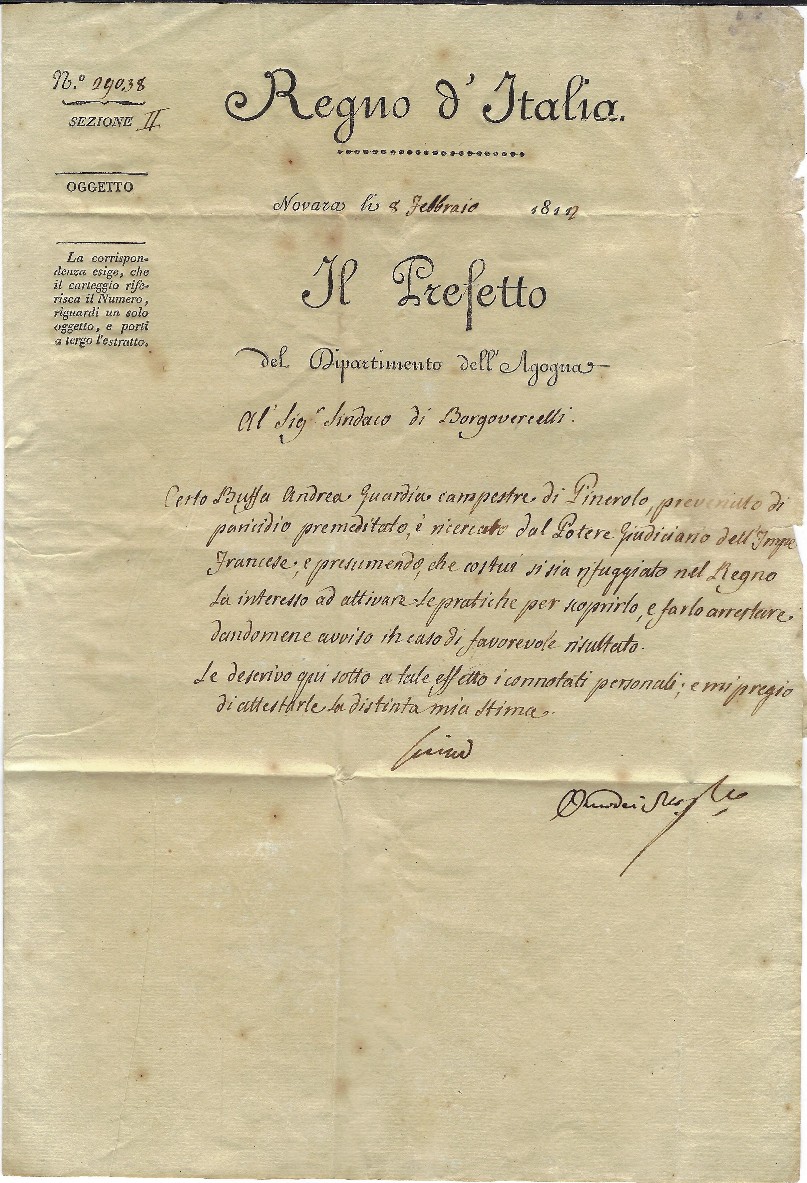 N.° 29038
SEZIONE II
OGGETTO
La corrispon-
denza esige, che
il carteggio rife-
risca il Numero,
riguardi un solo
oggetto, e porti
a tergo l'estratto.
Regno d'Italia.
Novara li 8 Febbraio 181
Il Prefetto
del Dipartimento dell'Agogna
Al Sig.r Sindaco di Borgovercelli.
Certo Buffa Andrea Guardia campestre di Pinerolo, prevenuto di
paricidio premeditato, è ricercato dal Potere Giudiciario dell'Impe
Francese; e presumendo, che costui si sia rifuggiato nel Regno
La interesso ad attivare le pratiche per scoprirlo, e farlo arrestare
dandomene avviso in caso di favorevole risultato.
Le descrivo qui sotto a tale effetto i connotati personali; e mi pregio
di attestarle la distinta mia stima.